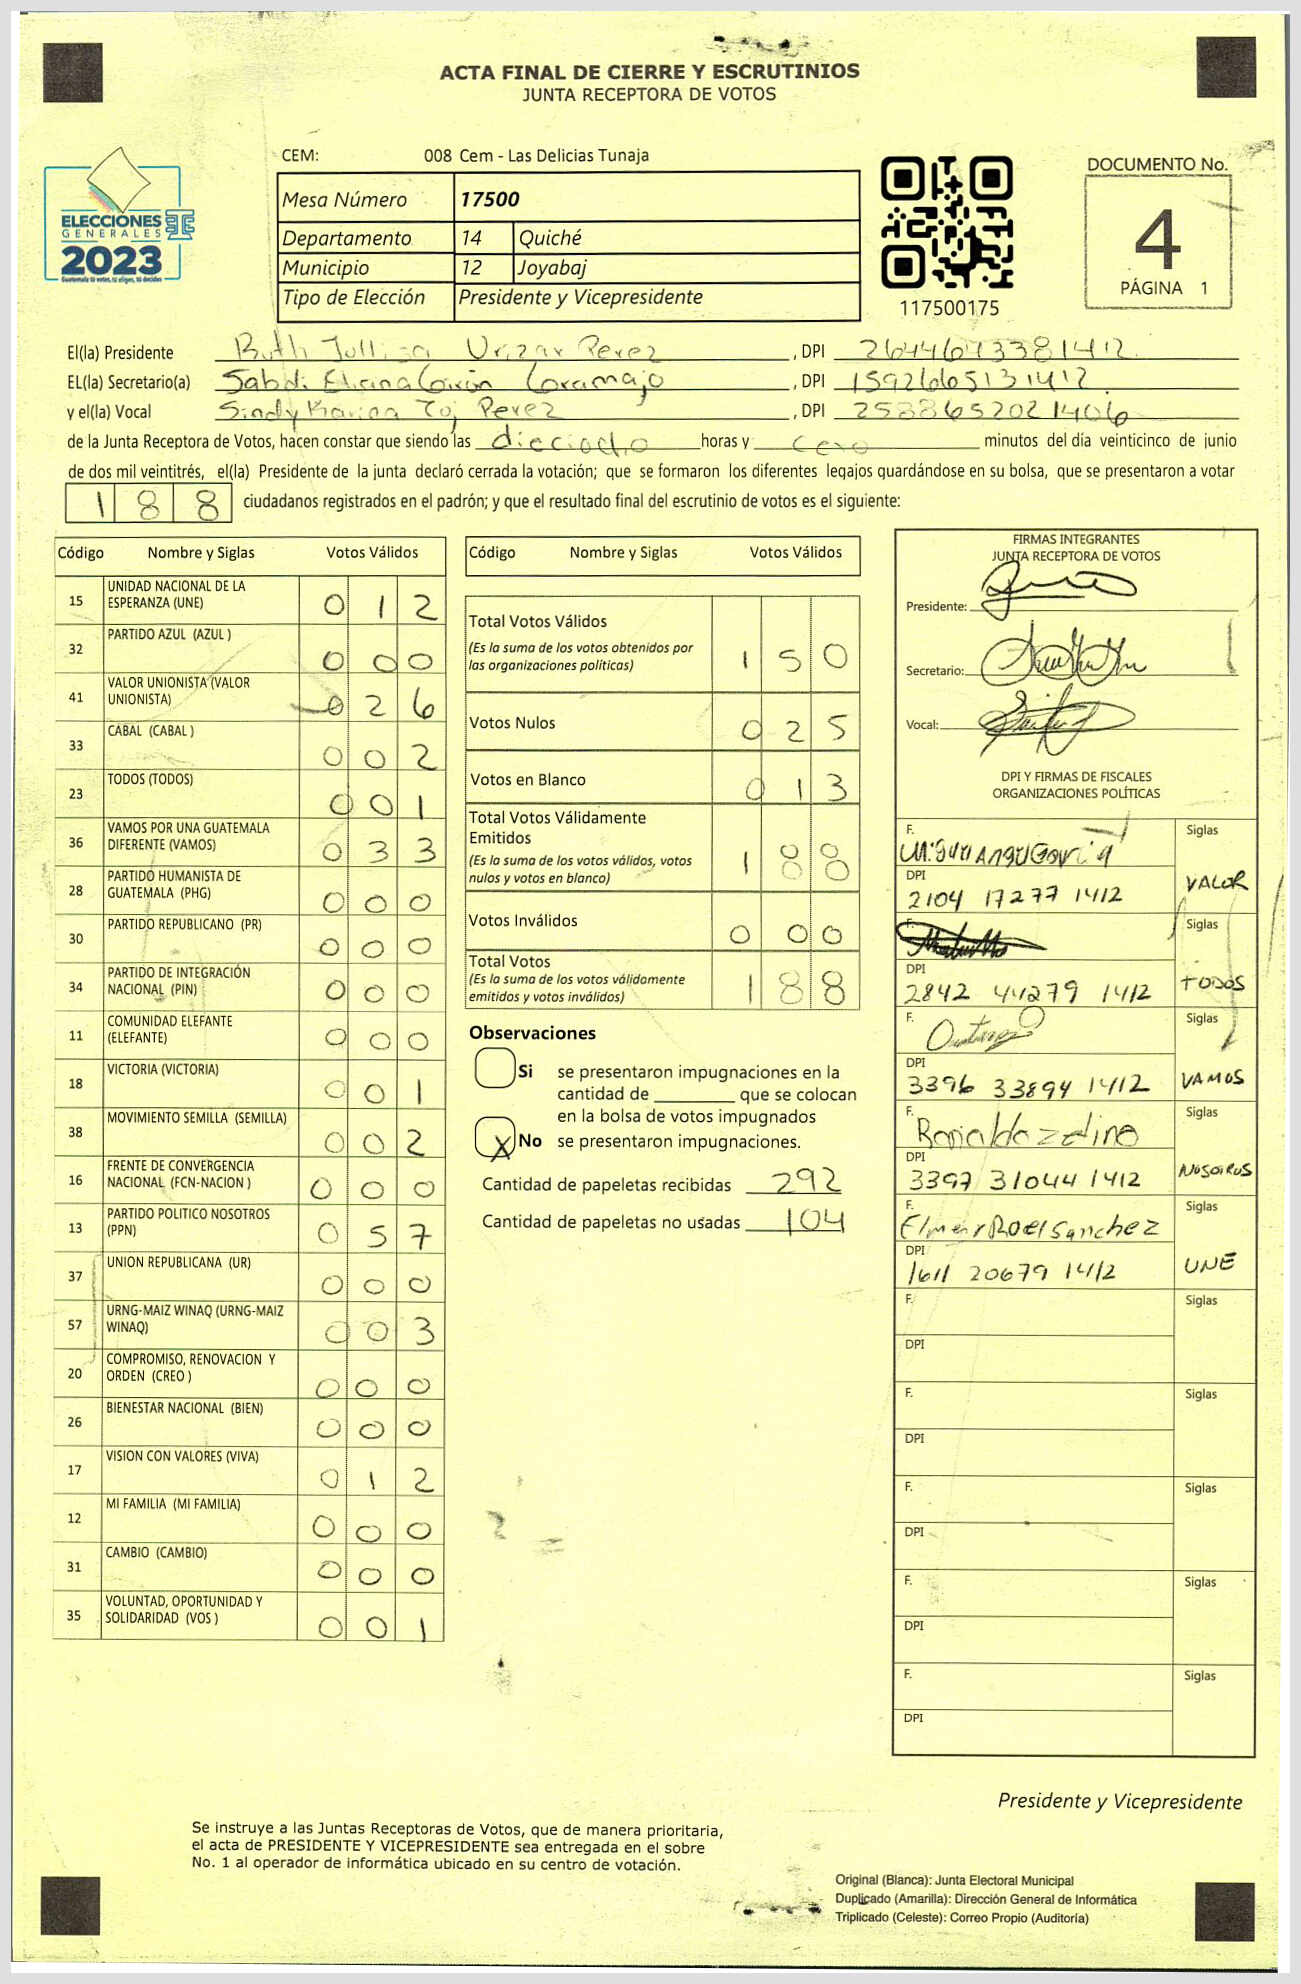 ACTA FINAL DE CIERRE Y ESCRUTINIOS
JUNTA RECEPTORA DE VOTOS
CEM: 008 Cem - Las Delicias Tunaja
DOCUMENTO No.
4
PÁGINA 1
ELECCIONES
GENERALES
2023
Guatemala tú votas, tú eliges, tú decides
Mesa Número 17500
Departamento 14 Quiché
Municipio 12 Joyabaj
Tipo de Elección Presidente y Vicepresidente
117500175
El(la) Presidente Ruth Urizar Perez, DPI 2644643381412
EL(la) Secretario(a), DPI 1592665131412
y el(la) Vocal Sindy Karina Toj Perez, DPI 2588652021406
de la Junta Receptora de Votos, hacen constar que siendo las dieciocho horas y cero minutos del día veinticinco de junio
de dos mil veintitrés, el(la) Presidente de la junta declaró cerrada la votación; que se formaron los diferentes legajos quardándose en su bolsa, que se presentaron a votar
188 ciudadanos registrados en el padrón; y que el resultado final del escrutinio de votos es el siguiente:
Código Nombre y Siglas Votos Válidos
15 UNIDAD NACIONAL DE LA
ESPERANZA (UNE) 0 1 2
32 PARTIDO AZUL (AZUL ) 0 0 0
41 VALOR UNIONISTA (VALOR
UNIONISTA) 0 2 6
33 CABAL (CABAL ) 0 0 2
23 TODOS (TODOS) 0 0 1
36 VAMOS POR UNA GUATEMALA
DIFERENTE (VAMOS) 0 3 3
28 PARTIDO HUMANISTA DE
GUATEMALA (PHG) 0 0 0
30 PARTIDO REPUBLICANO (PR) 0 0 0
34 PARTIDO DE INTEGRACIÓN
NACIONAL (PIN) 0 0 0
11 COMUNIDAD ELEFANTE
(ELEFANTE) 0 0 0
18 VICTORIA (VICTORIA) 0 0 1
38 MOVIMIENTO SEMILLA (SEMILLA) 0 0 2
16 FRENTE DE CONVERGENCIA
NACIONAL (FCN-NACION ) 0 0 0
13 PARTIDO POLITICO NOSOTROS
(PPN) 0 5 7
37 UNION REPUBLICANA (UR) 0 0 0
57 URNG-MAIZ WINAQ (URNG-MAIZ
WINAQ) 0 0 3
20 COMPROMISO, RENOVACION Y
ORDEN (CREO ) 0 0 0
26 BIENESTAR NACIONAL (BIEN) 0 0 0
17 VISION CON VALORES (VIVA) 0 1 2
12 MI FAMILIA (MI FAMILIA) 0 0 0
31 CAMBIO (CAMBIO) 0 0 0
35 VOLUNTAD, OPORTUNIDAD Y
SOLIDARIDAD (VOS ) 0 0 1
Código Nombre y Siglas Votos Válidos
Total Votos Válidos
(Es la suma de los votos obtenidos por
las organizaciones politicas) 1 5 0
Votos Nulos 0 2 5
Votos en Blanco 0 1 3
Total Votos Válidamente
Emitidos
(Es la suma de los votos válidos, votos
nulos y votos en blanco) 1 8 8
Votos Inválidos 0 0 0
Total Votos
(Es la suma de los votos válidamente
emitidos y votos inválidos) 1 8 8
Observaciones
Si se presentaron impugnaciones en la
cantidad de ________ que se colocan
en la bolsa de votos impugnados
X No se presentaron impugnaciones.
Cantidad de papeletas recibidas 292
Cantidad de papeletas no usadas 104
FIRMAS INTEGRANTES
JUNTA RECEPTORA DE VOTOS
Presidente:
Secretario:
Vocal:
DPI Y FIRMAS DE FISCALES
ORGANIZACIONES POLÍTICAS
F. Siglas
DPI
2104 17277 1412 VALOR
F. Siglas
DPI
2842 44279 1412 TODOS
F. Siglas
DPI
3396 33894 1412 VAMOS
F. Siglas
DPI
3397 31044 1412 NOSOTROS
F. Siglas
Elmer Roel Sanchez
DPI
1611 20679 1412 UNE
F. Siglas
DPI
F. Siglas
DPI
F. Siglas
DPI
F. Siglas
DPI
F. Siglas
DPI
Presidente y Vicepresidente
Se instruye a las Juntas Receptoras de Votos, que de manera prioritaria,
el acta de PRESIDENTE Y VICEPRESIDENTE sea entregada en el sobre
No. 1 al operador de informática ubicado en su centro de votación.
Original (Blanca): Junta Electoral Municipal
Duplicado (Amarilla): Dirección General de Informática
Triplicado (Celeste): Correo Propio (Auditoría)